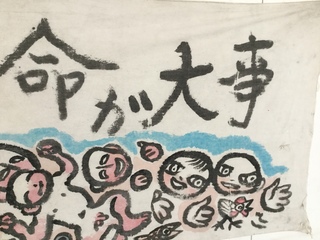 命が大事